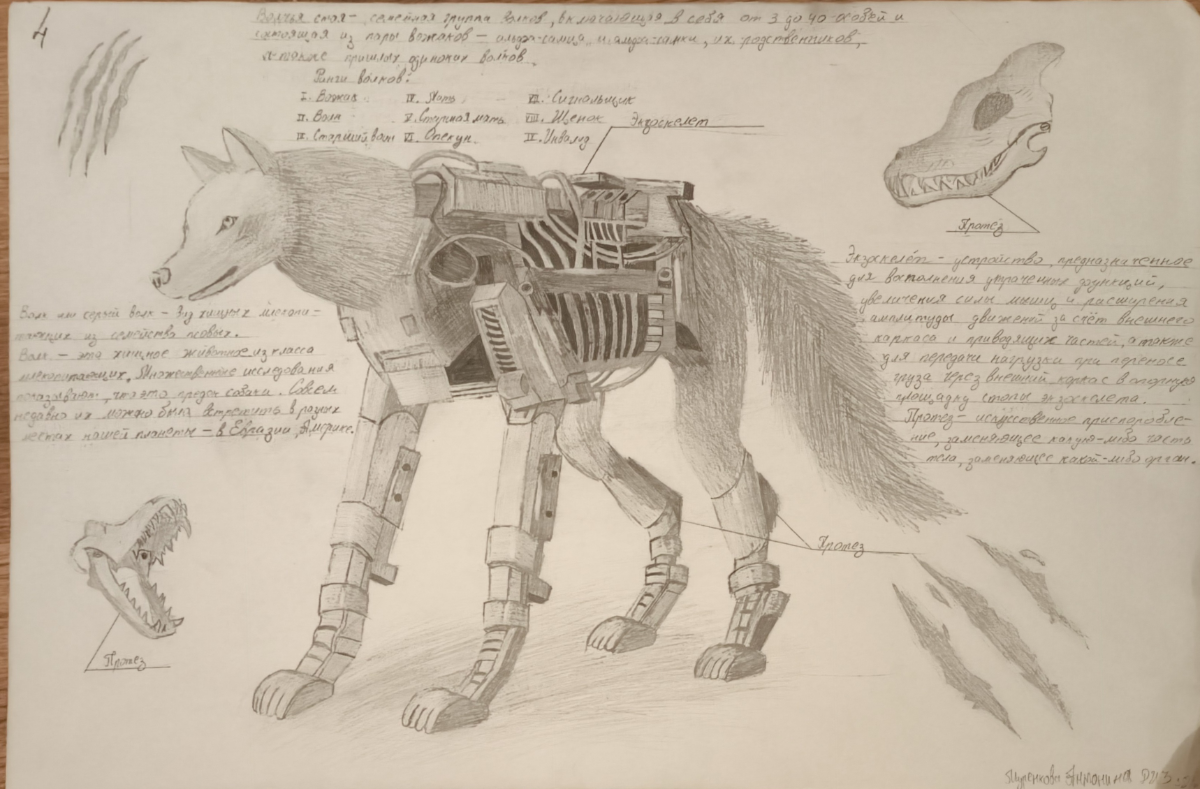 4
Волчья стая - семейная группа волков, включающая в себя от 3 до 40 особей и
состоящая из пары вожаков - альфа-самца и альфа-самки, их родственников,
а также пришлых одиноких волков.
Ранги волков:
I. Вожак IV. Мать VII. Сигнальщик
II. Волк V. Старшая мать VIII. Щенок
III. Старший волк VI. Опекун IX. Инвалид
Экзоскелет
Протез
Экзоскелет - устройство, предназначенное
для восполнения утраченных функций,
увеличения силы мышц и расширения
амплитуды движений за счёт внешнего
каркаса и приводящих частей, а также
для передачи нагрузки при переносе
груза через внешний каркас в опорную
площадку стопы экзоскелета.
Протез - искусственное приспособле-
ние, заменяющее какую-либо часть
тела, заменяющее какой-либо орган.
Волк или серый волк - вид хищных млекопи-
тающих из семейства псовых.
Волк - это хищное животное из класса
млекопитающих. Множественные исследования
показывают, что это предок собаки. Совсем
недавно их можно было встретить в разных
местах нашей планеты - в Евразии, Америке.
Протез
Протез
Антонина